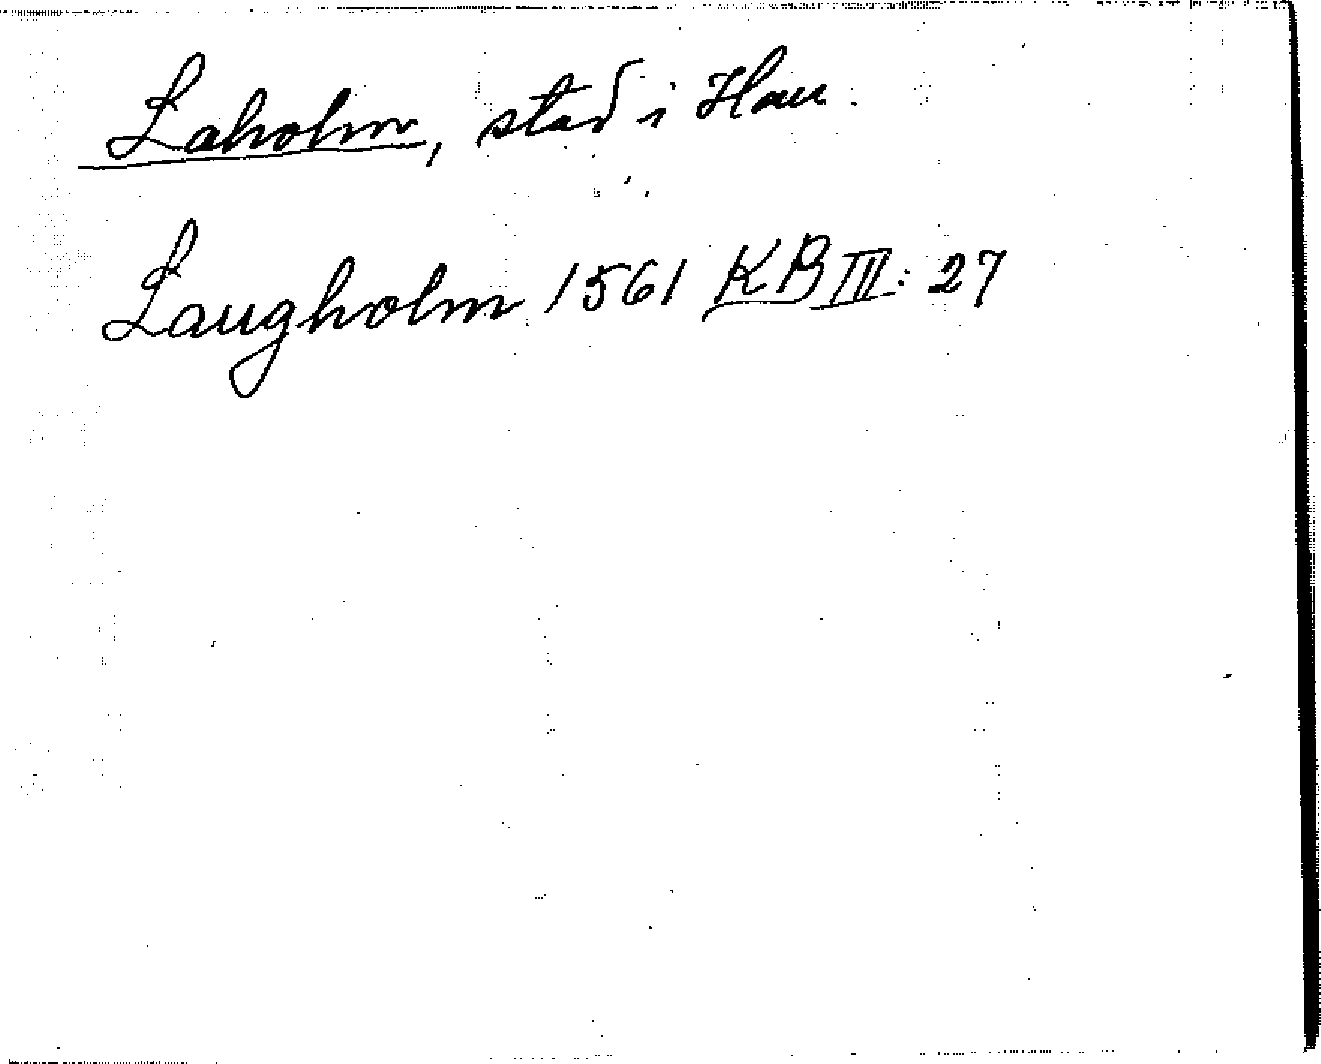 Laholm, stad i Hall.
Laugholm 1561 KB III: 27